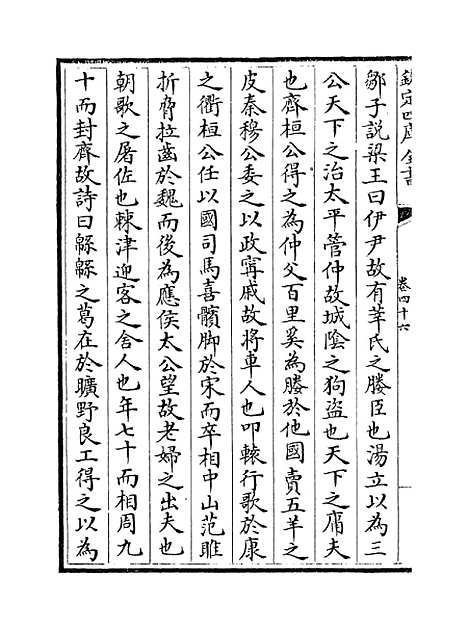 欽定四庫全書
卷四十六
鄒子說梁王曰伊尹故有莘氏之媵臣也湯立以為三
公天下之治太平管仲故城陰之狗盜也天下之庸夫
也齊桓公得之為仲父百里奚為媵於他國賣五羊之
皮秦穆公委之以政甯戚故將車人也叩轅行歌於康
之衢桓公任以國司馬喜臏脚於宋而卒相中山范雎
折脅拉齒於魏而後為應侯太公望故老婦之出夫也
朝歌之屠佐也棘津迎客之舍人也年七十而相周九
十而封齊故詩曰緜緜之葛在於曠野良工得之以為